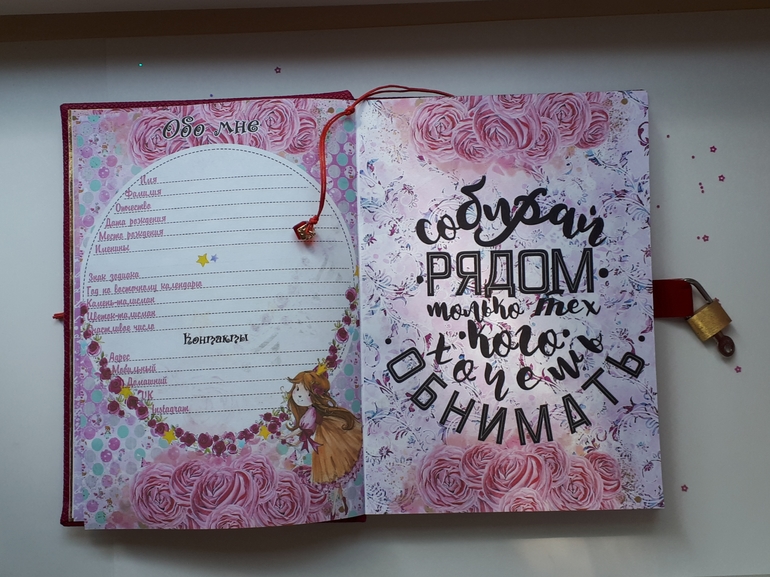 Обо мне
Имя
Фамилия
Отчество
Дата рождения
Место рождения
Именины
Знак зодиака
Год по восточному календарю
Камень-талисман
Цветок-талисман
Счастливое число
Контакты
Адрес
Мобильный
Домашний
VK
Instagram
собирай
РЯДОМ
только тех
кого
хочешь
ОБНИМАТЬ